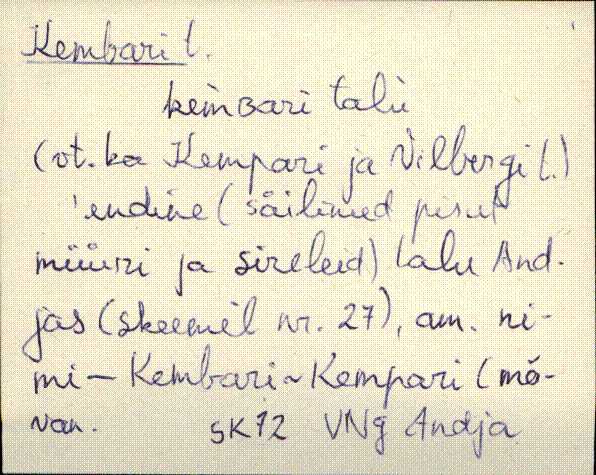 Kembari t.
kemBari talu
(vt. ka Kempari ja Vilbergi t.)
endine (säilinud pisut
müüri ja sireleid) talu And-
jas (skeemil nr. 27), am. ni-
mi — Kembari ~ Kempari (mõ-
van. SK72 VNg Andja